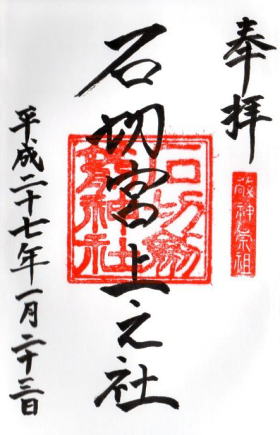 奉拝
敬神崇祖
石切宮上之社
石切劔箭神社
平成二十七年一月二十三日